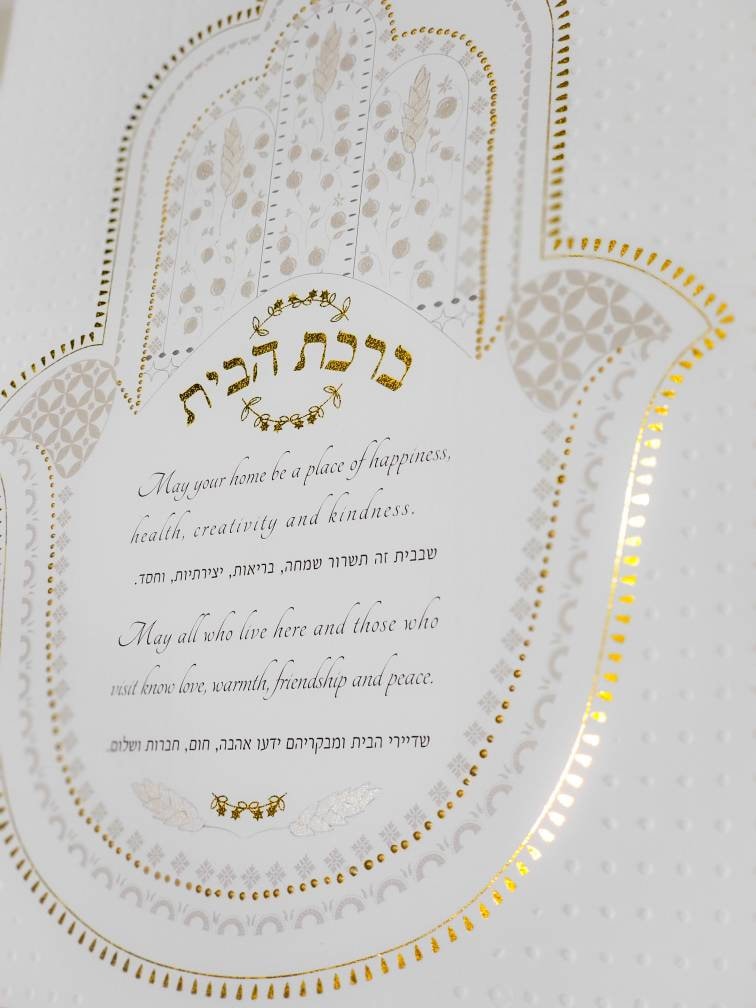 ברכת הבית
May your home be a place of happiness,
health, creativity and kindness.
שבבית זה תשרור שמחה, בריאות, יצירתיות, וחסד.
May all who live here and those who
visit know love, warmth, friendship and peace.
שדיירי הבית ומבקריהם ידעו אהבה, חום, חברות ושלום.